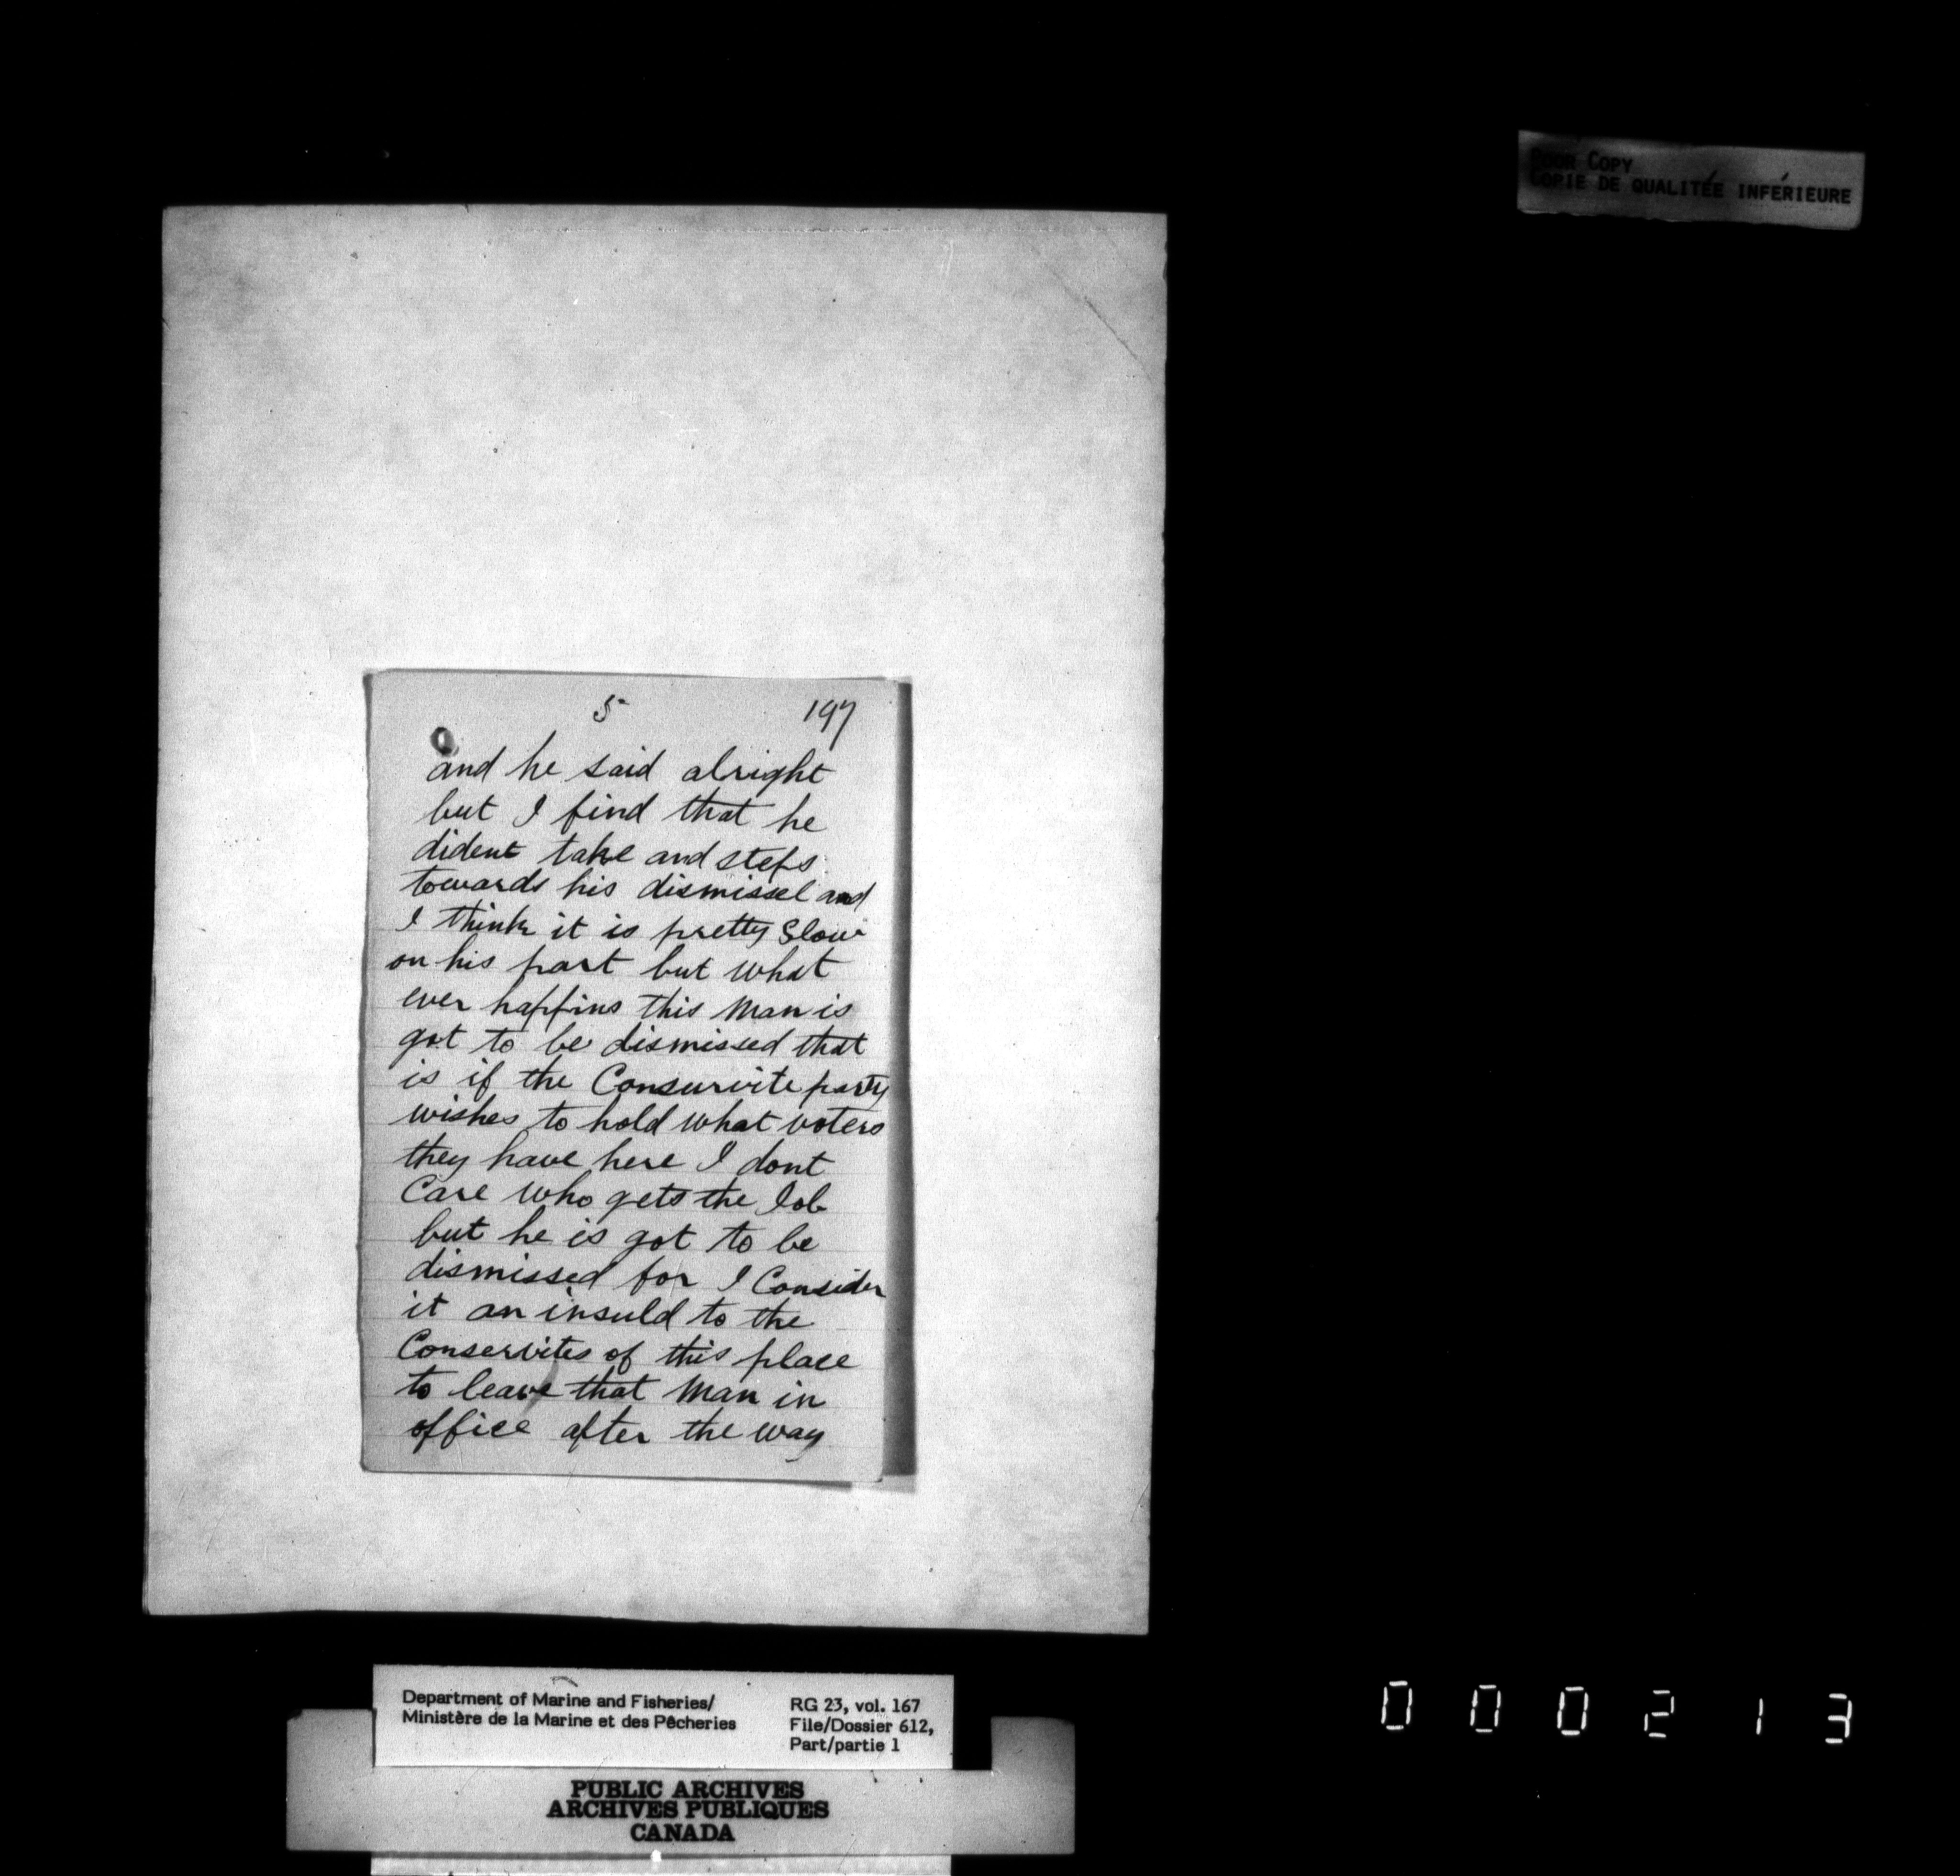 POOR COPY
COPIE DE QUALITÉE INFÉRIEURE
5
197
and he said alright
but I find that he
dident take and steps
towards his dismissel and
I think it is pretty Slow
on his part but what
ever happins this man is
got to be dismissed that
is if the Consurvite party
wishes to hold what voters
they have here I dont
Care who gets the Job
but he is got to be
dismissed for I Consider
it an insuld to the
Conservites of this place
to leave that man in
office after the way
Department of Marine and Fisheries/
Ministère de la Marine et des Pêcheries
RG 23, vol. 167
File/Dossier 612,
Part/partie 1
PUBLIC ARCHIVES
ARCHIVES PUBLIQUES
CANADA
000213